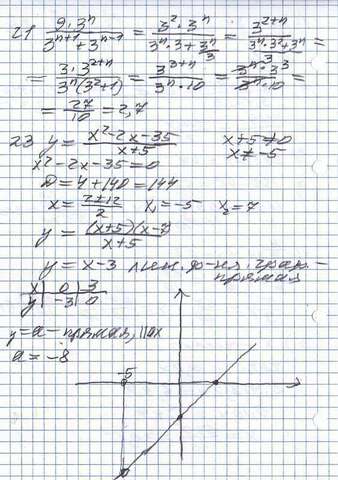 21 (9·3ⁿ)/(3ⁿ⁺¹+3ⁿ⁻¹) = (3²·3ⁿ)/(3ⁿ·3+3ⁿ/3) = 3²⁺ⁿ/((3ⁿ·3²+3ⁿ)/3) =
= (3·3²⁺ⁿ)/(3ⁿ(3²+1)) = 3³⁺ⁿ/(3ⁿ·10) = (3ⁿ·3³)/(3ⁿ·10) =
= 27/10 = 2,7
23 y = (x²-2x-35)/(x+5) x+5≠0
x²-2x-35=0 x≠-5
D=4+140=144
x = (2±12)/2 x₁=-5 x₂=7
y = ((x+5)(x-7))/(x+5)
y = x-3 лин. ф-ия. граф.-
прямая
x | 0 | 3
y | -3 | 0
y=a- прямая, ||ox
a=-8
-5